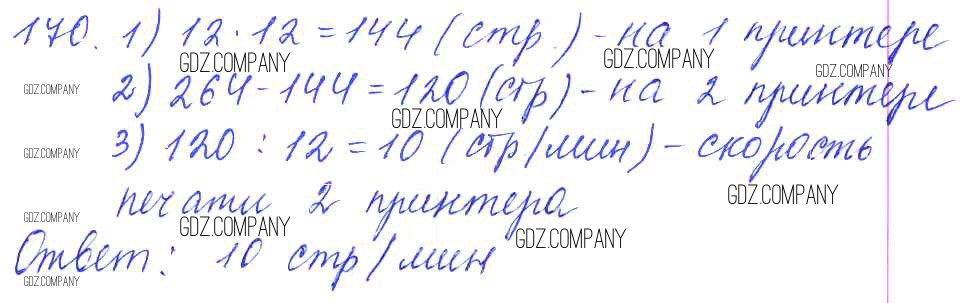 170. 1) 12 · 12 = 144 (стр.) - на 1 принтере
GDZ.COMPANY GDZ.COMPANY GDZ.COMPANY
GDZ.COMPANY 2) 264 - 144 = 120 (стр) - на 2 принтере
GDZ.COMPANY
GDZ.COMPANY 3) 120 : 12 = 10 (стр/мин) - скорость
GDZ.COMPANY
GDZ.COMPANY печати 2 принтера
GDZ.COMPANY GDZ.COMPANY
Ответ: 10 стр/мин
GDZ.COMPANY